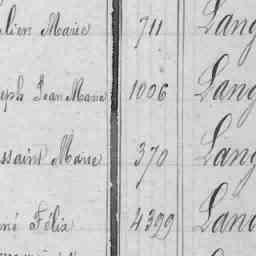 lien Marie 711 Lang
seph Jean Marie 1006 Lang
ssaint Marie 370 Lang
né Félix 4399 Lang